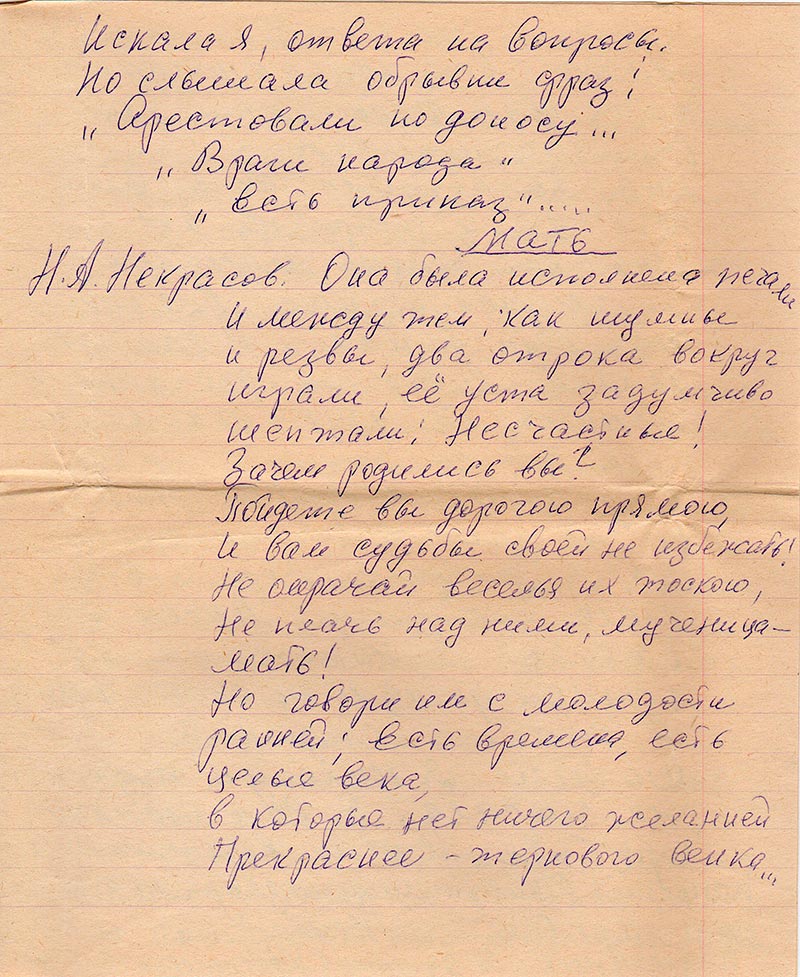 Искала я, ответа на вопросы.
Но слышала обрывки фраз:
„Арестовали по доносу...
„Враги народа"
„есть приказ".....
Мать
Н.А.Некрасов. Она была исполнена печали
И между тем, как шумны
и резвы, два отрока вокруг
играли, её уста задумчиво
шептали: Несчастные!
Зачем родились вы?
Пойдете вы дорогою прямою,
И вам судьбы своей не избежать!
Не омрачай веселья их тоскою,
Не плачь над ними, мученица-
мать!
Но говори им с молодости
ранней: есть времена, есть
целые века,
в которые нет ничего желанней
Прекраснее - тернового венка...